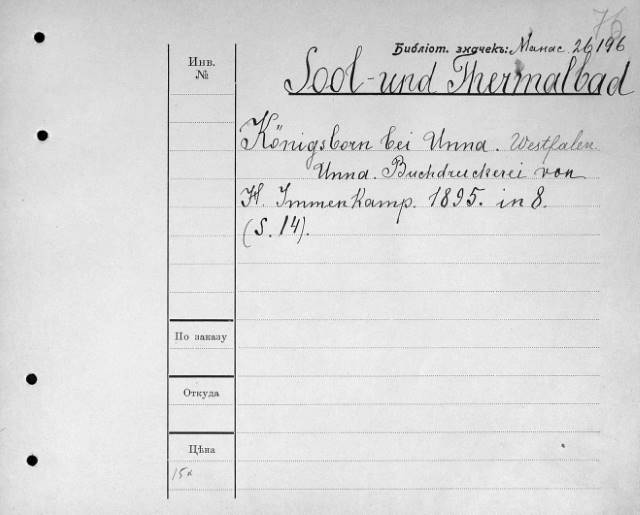 76
Библіот. значекъ: Манас. 26/196
Инв.
№
Sool- und Thermalbad
Königsborn bei Unna. Westfalen
Unna. Buchdruckerei von
H. Immenkamp. 1895. in 8.
(S. 14).
По заказу
Откуда
Цѣна
15к